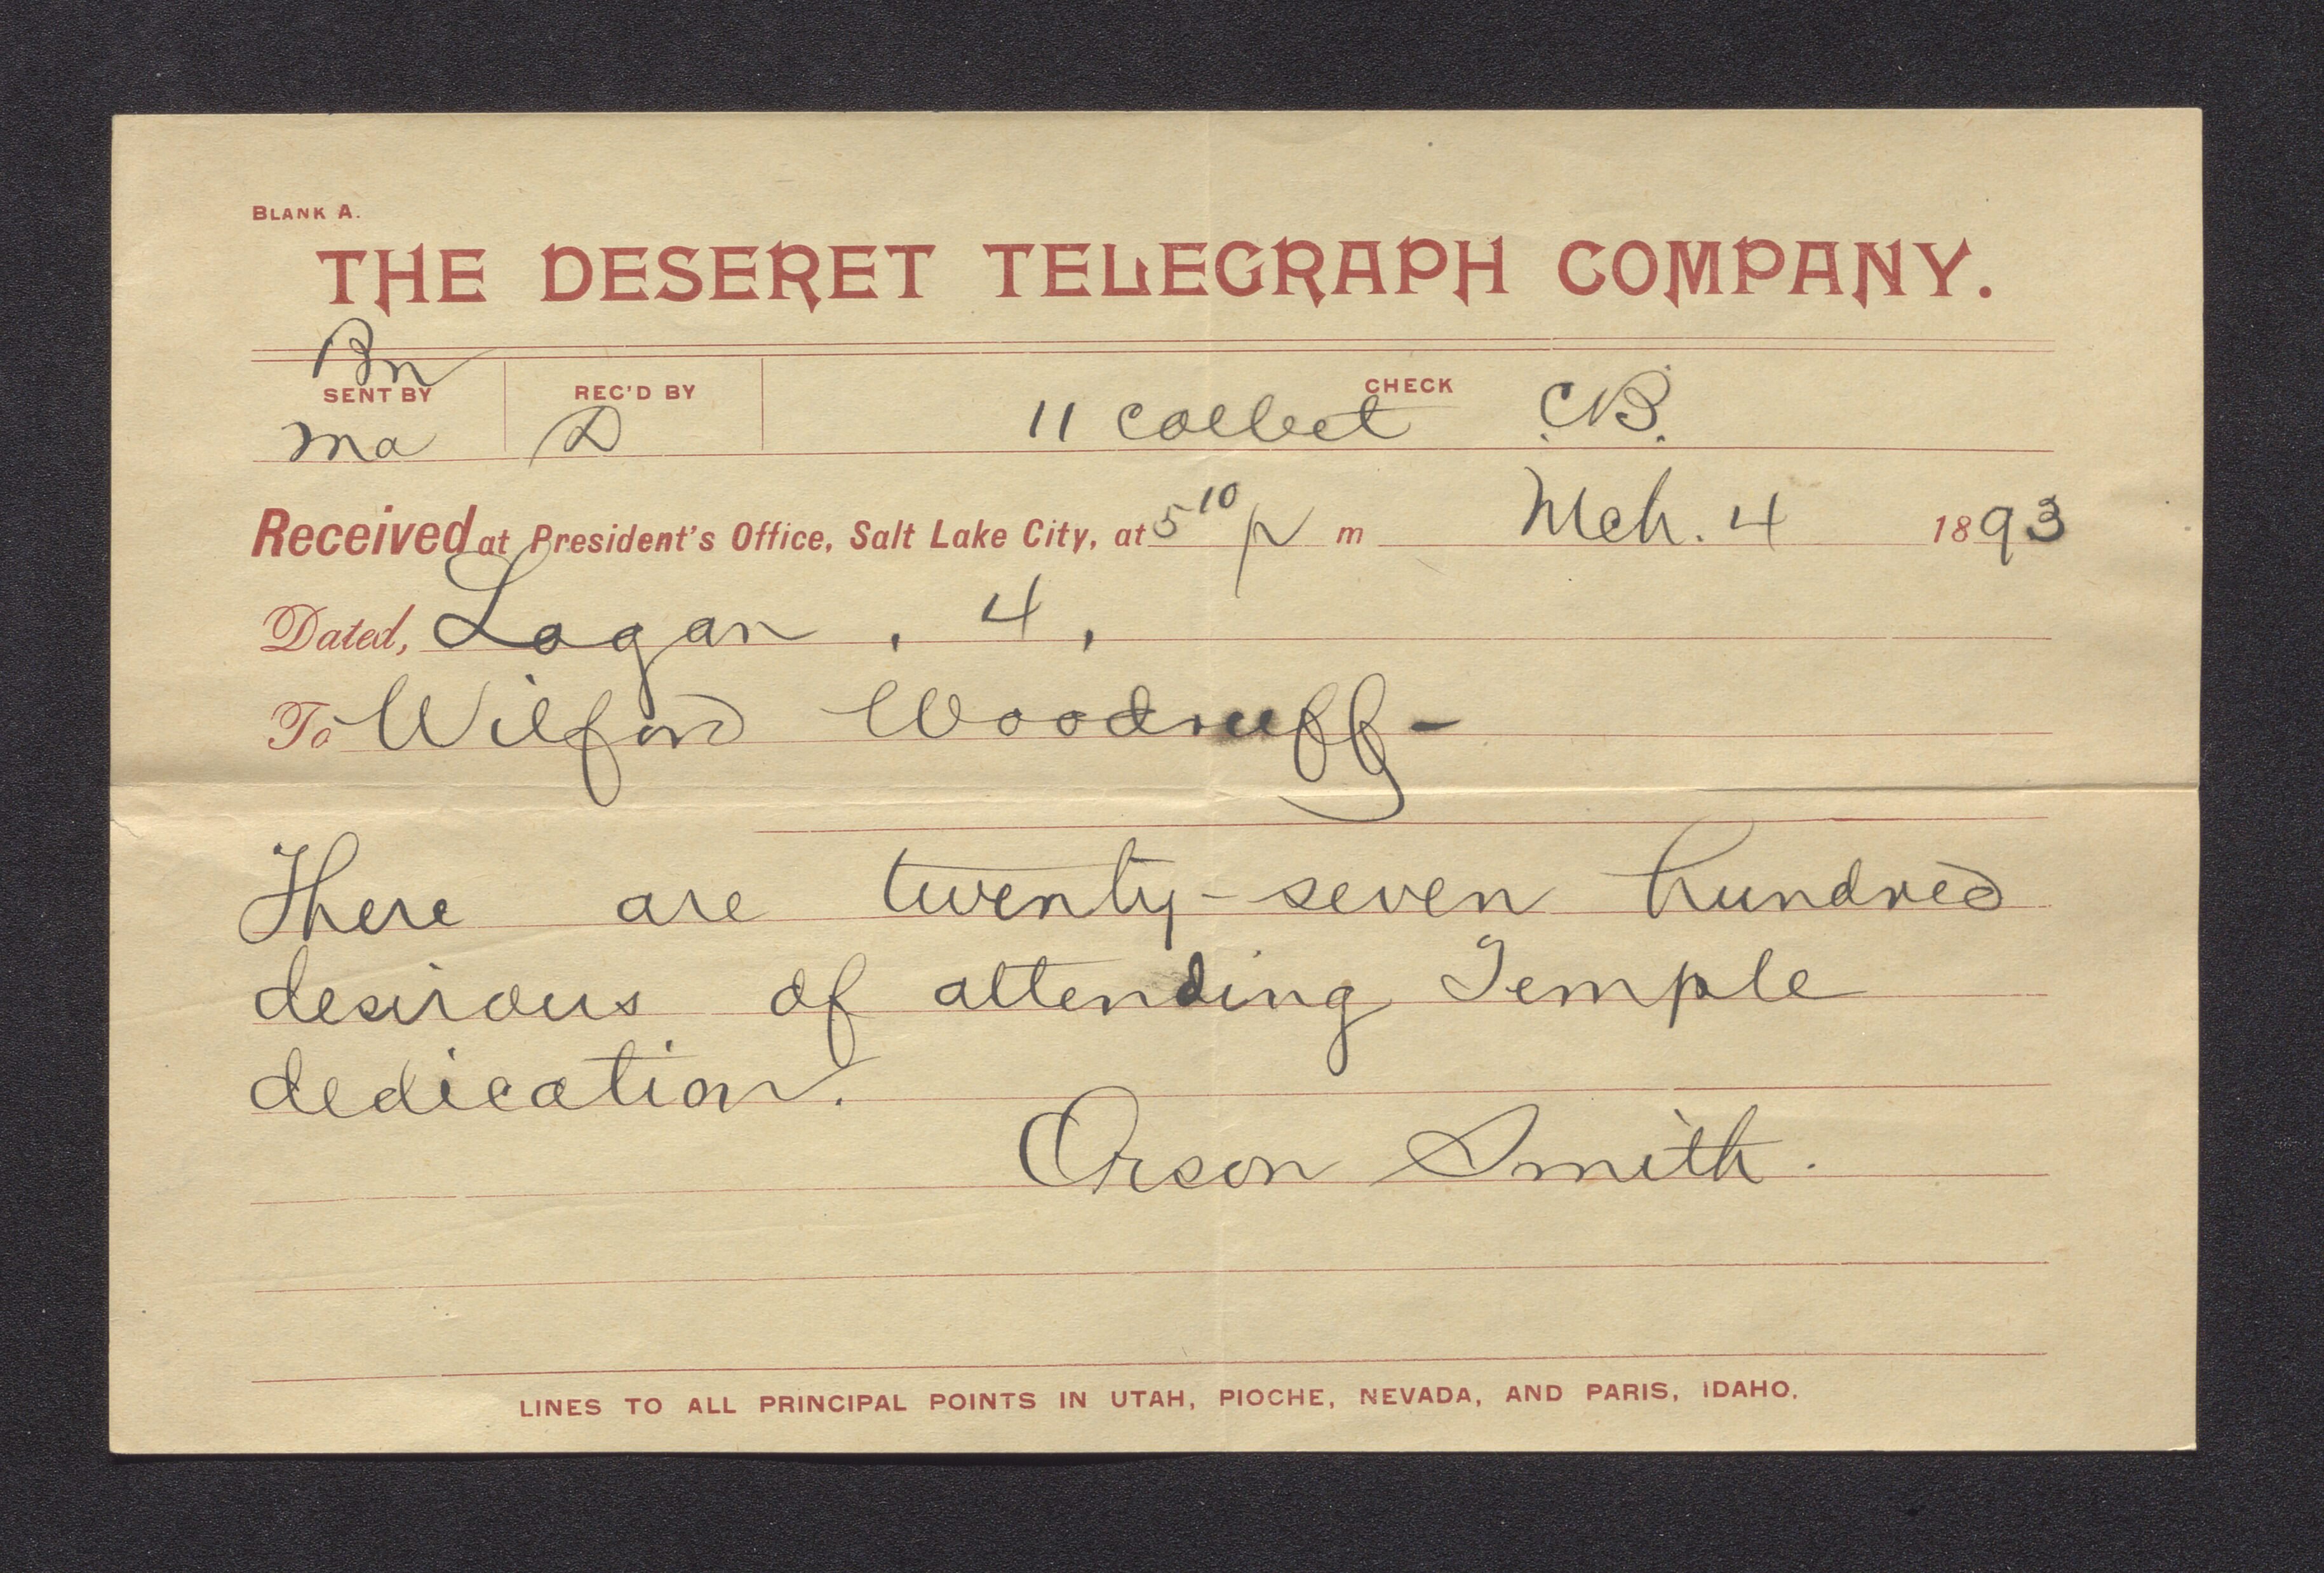 BLANK A.
THE DESERET TELEGRAPH COMPANY.
Bn
SENT BY REC'D BY CHECK
ma D 11 collect CB.
Received at President's Office, Salt Lake City, at 5 10 p m Mch. 4 1893
Dated, Logan, 4,
To Wilford Woodruff-
There are twenty-seven hundred
desirous of attending Temple
dedication.
Orson Smith.
LINES TO ALL PRINCIPAL POINTS IN UTAH, PIOCHE, NEVADA, AND PARIS, IDAHO.